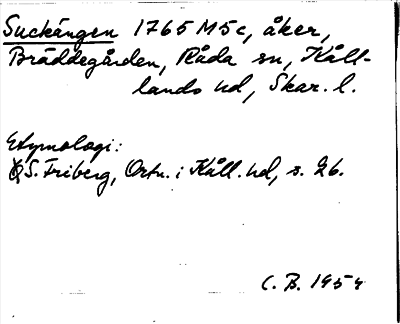 Suckängen 1765 M5c, åker,
Bräddegården, Råda sn, Kåll-
lands hd, Skar. l.
Etymologi:
S. Friberg, Ortn. i Kåll. hd, s. 26.
C. B. 1954